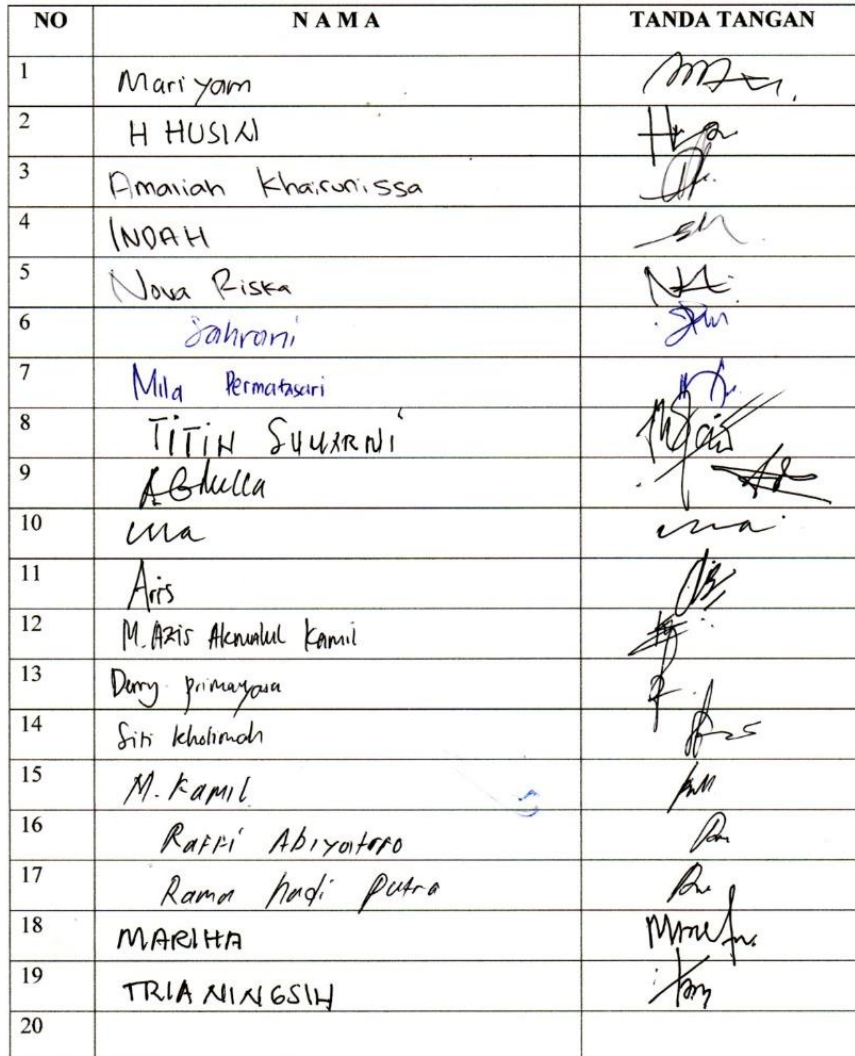 NO NAMA TANDA TANGAN
1 Mariyam
2 H HUSIN
3 Amaliah Khairunissa
4 INDAH
5 Nova Riska
6 Sahrani
7 Mila Permatasari
8 TITIN SUHARNI
9 Abdulla
10
11 Aris
12 M. Azis Akmalul Kamil
13 Derry primayasa
14 Siti Kholimah
15 M. Kamil
16 Raffi Abiyatrro
17 Rama hadi Putra
18 MARIHA
19 TRIA NINGSIH
20